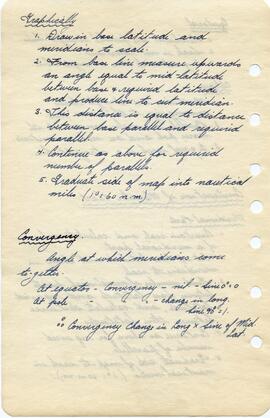 Graphically
1. Draw in base latitude and
meridians to scale.
2. From base line measure upwards
an angle equal to mid-latitude
between base & required latitude
and produce line to cut meridian.
3. This distance is equal to distance
between base parallel and required
parallel.
4. Continue as above for required
number of parallels.
5. Graduate side of map into nautical
miles (1° = 60 n.m.)
Convergency.
Angle at which meridians come
together.
At equator - Convergency - nil - Sine 0° = 0
At pole - " - - change in long.
Sine 90° = 1.
∴ Convergency Change in Long × Sine of Mid
Lat.